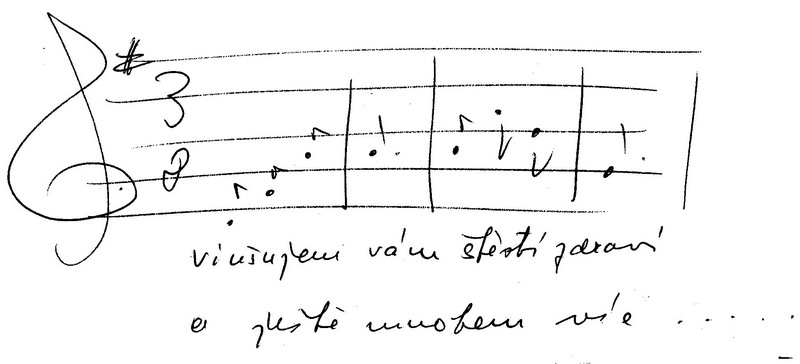 3
8
vinšujem vám štěstí zdraví
a ještě mnohem víc .....